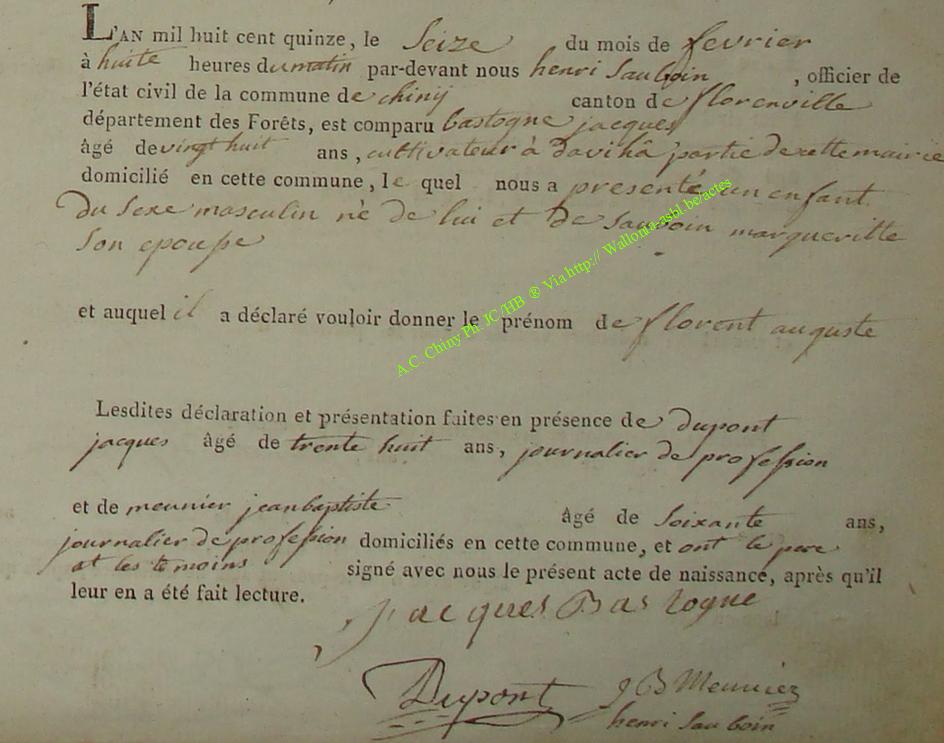 L'AN mil huit cent quinze, le Seize du mois de fevrier
à huite heures du matin par-devant nous henri Sauboin , officier de
l'état civil de la commune de chinij canton de florenville
département des Forêts, est comparu bastogne jacques
âgé de vingt huit ans, cultivateur à davihâ partie de cette mairie
domicilié en cette commune, le quel nous a presenté un enfant
du Sexe masculin né de lui et de Sauboin margueritte
Son epousse
et auquel il a déclaré vouloir donner le prénom de florent auguste
Lesdites déclaration et présentation faites en présence de dupont
jacques âgé de trente huit ans, journalier de profession
et de meunier jean baptiste âgé de Soixante ans,
journalier de profession domiciliés en cette commune, et ont le pere
et les temoins signé avec nous le présent acte de naissance, après qu'il
leur en a été fait lecture.
jacques Bastogne
Dupont J B Meunier
henri Sauboin
A.C. Chiny Ph. JC/HB ® Via http:// Wallonia-asbl.be/actes